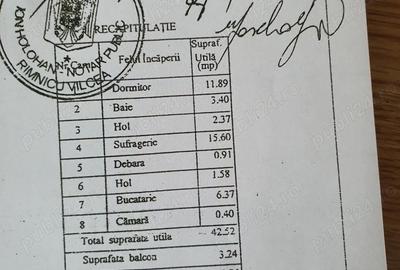 RECAPITULAȚIE
ION HOLOHAN - NOTAR PUBLIC
RIMNICU VILCEA
Nr. Cam. Felul încăperii Supraf. Utilă (mp)
Dormitor 11.89
2 Baie 3.40
3 Hol 2.37
4 Sufragerie 15.60
5 Debara 0.91
6 Hol 1.58
7 Bucatarie 6.37
8 Cămară 0.40
Total suprafata utila 42.52
Suprafata balcon 3.24